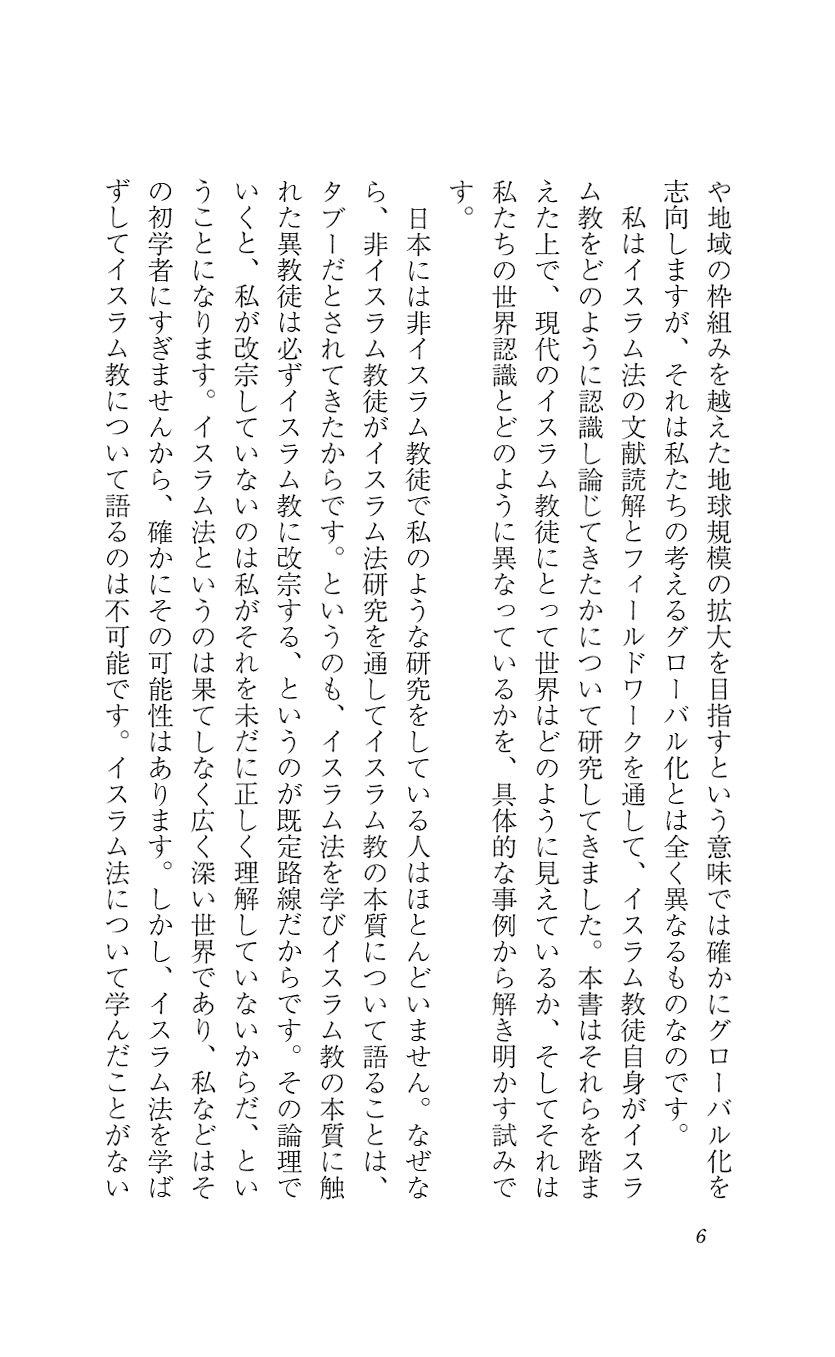 や地域の枠組みを越えた地球規模の拡大を目指すという意味では確かにグローバル化を
志向しますが、それは私たちの考えるグローバル化とは全く異なるものなのです。
私はイスラム法の文献読解とフィールドワークを通して、イスラム教徒自身がイスラ
ム教をどのように認識し論じてきたかについて研究してきました。本書はそれらを踏ま
えた上で、現代のイスラム教徒にとって世界はどのように見えているか、そしてそれは
私たちの世界認識とどのように異なっているかを、具体的な事例から解き明かす試みで
す。
日本には非イスラム教徒で私のような研究をしている人はほとんどいません。なぜな
ら、非イスラム教徒がイスラム法研究を通してイスラム教の本質について語ることは、
タブーだとされてきたからです。というのも、イスラム法を学びイスラム教の本質に触
れた異教徒は必ずイスラム教に改宗する、というのが既定路線だからです。その論理で
いくと、私が改宗していないのは私がそれを未だに正しく理解していないからだ、とい
うことになります。イスラム法というのは果てしなく広く深い世界であり、私などはそ
の初学者にすぎませんから、確かにその可能性はあります。しかし、イスラム法を学ば
ずしてイスラム教について語るのは不可能です。イスラム法について学んだことがない
6